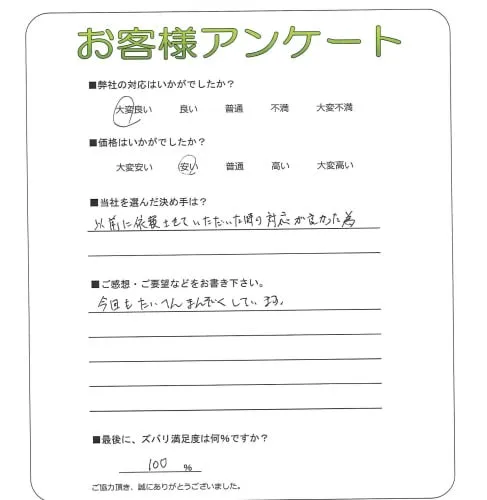 お客様アンケート
■弊社の対応はいかがでしたか?
大変良い 良い 普通 不満 大変不満
■価格はいかがでしたか?
大変安い 安い 普通 高い 大変高い
■当社を選んだ決め手は?
以前に依頼させていただいた時り対応が良かった為
■ご感想・ご要望などをお書き下さい。
今回もたいへんまんぞくしています。
■最後に、ズバリ満足度は何%ですか?
100 %
ご協力頂き、誠にありがとうございました。